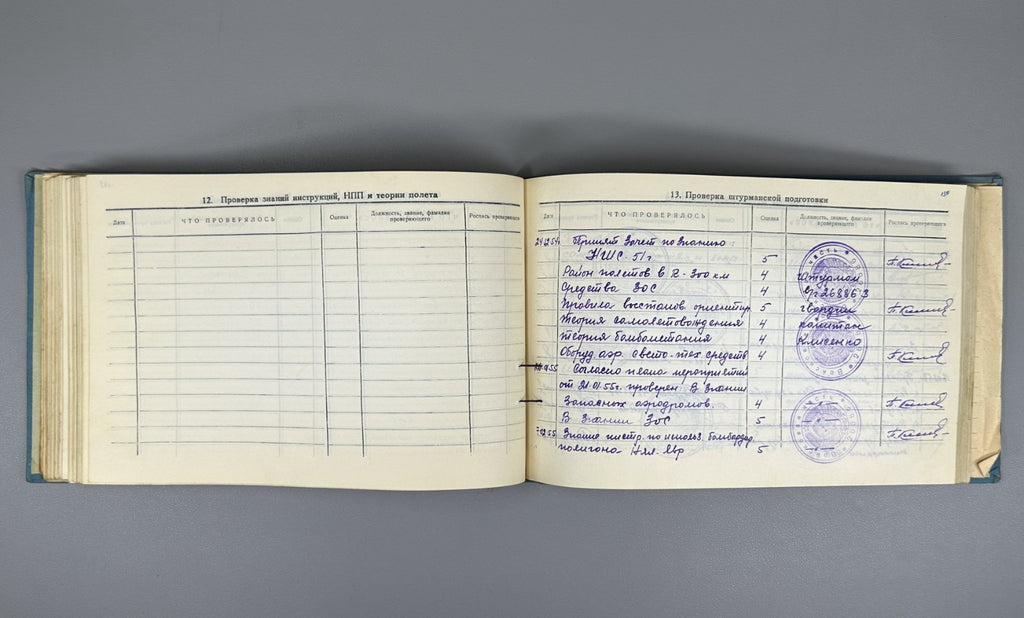 12. Проверка знаний инструкций, НПП и теории полета
Дата
ЧТО ПРОВЕРЯЛОСЬ
Оценка
Должность, звание, фамилия
проверяющего
Роспись проверяющего
13. Проверка штурманской подготовки
Дата
ЧТО ПРОВЕРЯЛОСЬ
Оценка
Должность, звание, фамилия
проверяющего
Роспись проверяющего
Принят зачет по знанию
НШС-51г. 5
Район полетов в R-300 км 4 Штурман
Средства ЗОС 4
Правила восстанов. ориентир. 5 гвардии
Теория самолетовождения 4 капитан
Теория бомбометания 4
Оборуд. аэр. свето-тех средств 4
Согласно плана мероприятий
от 21.01.55г. проверен. В знании
Запасных аэродромов. 4
В знании ЗОС 5
Знание инстр. по использ. бомбард.
полигона 5